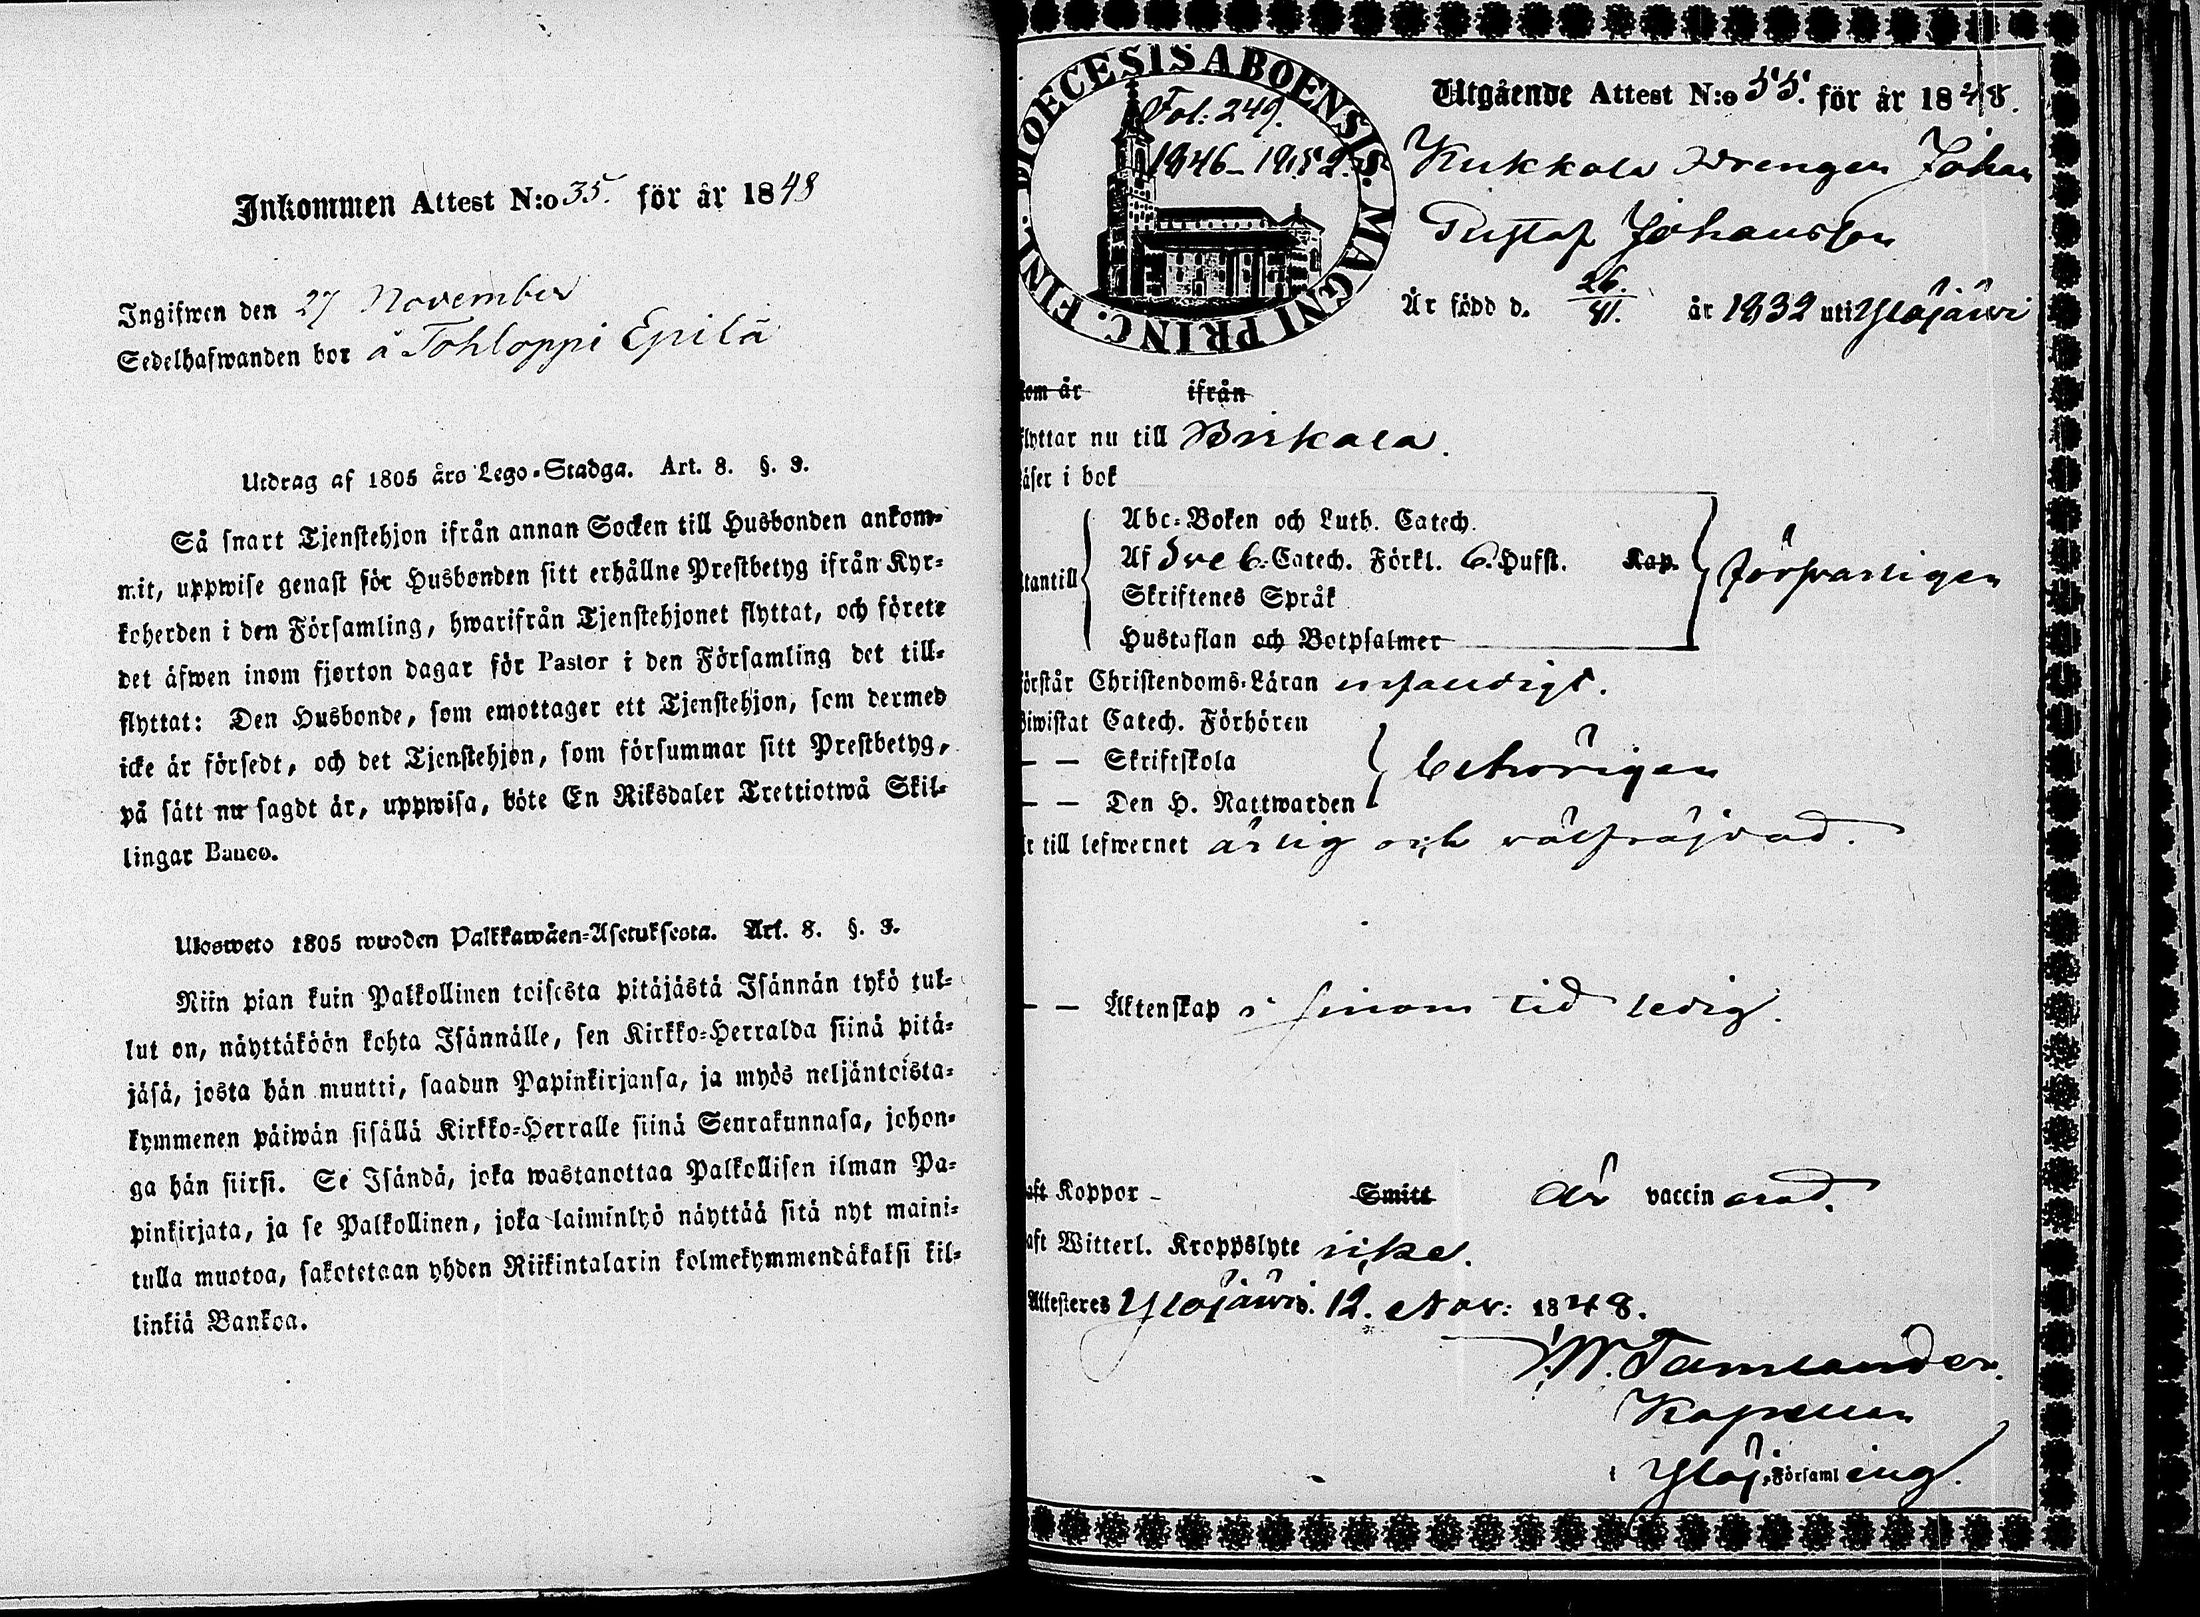 Inkommen Attest N:o 35. för år 1848
Ingifwen den 27 November
Sedelhafwanden bor å Tohloppi Epilä
Utdrag af 1805 års Lego-Stadga. Art. 8. §. 3.
Så snart Tjenstehjon ifrån annan Socken till Husbonden ankom-
mit, uppwise genast för Husbonden sitt erhållne Prestbetyg ifrån Kyr-
koherden i den Församling, hwarifrån Tjenstehjonet flyttat, och förete
det äfwen inom fjorton dagar för Pastor i den Församling det till-
flyttat: Den Husbonde, som emottager ett Tjenstehjon, som dermed
icke är försedt, och det Tjenstehjon, som försummar sitt Prestbetyg,
på sätt nu sagdt är, uppwisa, böte En Riksdaler Trettiotwå Skil-
lingar Banco.
Ulosweto 1805 wuoden Palkkawäen-Asetuksesta. Art. 8. §. 3.
Niin pian kuin Palkollinen toisesta pitäjästä Isännän tykö tul-
lut on, näyttäköön kohta Isännälle, sen Kirkko-Herralda siinä pitä-
jäsä, josta hän muutti, saadun Papinkirjansa, ja myös neljäntoista-
kymmenen päiwän sisällä Kirkko-Herralle siinä Seurakunnasa, johon-
ga hän siirsi. Se Isändä, joka wastanottaa Palkollisen ilman Pa-
pinkirjata, ja se Palkollinen, joka laiminlyö näyttää sitä nyt maini-
tulla muotoa, sakotetaan yhden Riikintalarin kolmekymmendäkaksi kil-
linkiä Bankoa.
DIOECESIS ABOENSIS. MAGNI PRINC. FINL.
Fol: 249.
1846-1852.
Utgående Attest N:o 55. för år 1848.
Kukkola Drengen Johan
Gustaf Johansson
Är född d. 26/11. år 1832 uti Ylöjärwi
kom år ifrån
flyttar nu till Birkala.
läser i bok
Utantill
Abc-Boken och Luth. Catech.
Af Sve b. Catech. Förkl. 6. Hufst. Kap.
Skriftenes Språk
Hustaflan och Botpsalmer
försvarligen
förstår Christendoms-Läran enfaldigt.
Biwistat Catech. Förhören
— — Skriftskola
— — Den H. Nattwarden
behörigen
är till lefwernet ärlig och välfräjdad.
— — Äktenskap i sinom tid ledig.
haft Koppor - Smitt är vaccinerad.
haft Witterl. Kroppslyte icke.
Attesteres Ylöjärwi d. 12. Nov: 1848.
W. Tamlander.
Kapellan
i Ylöj. Församling.